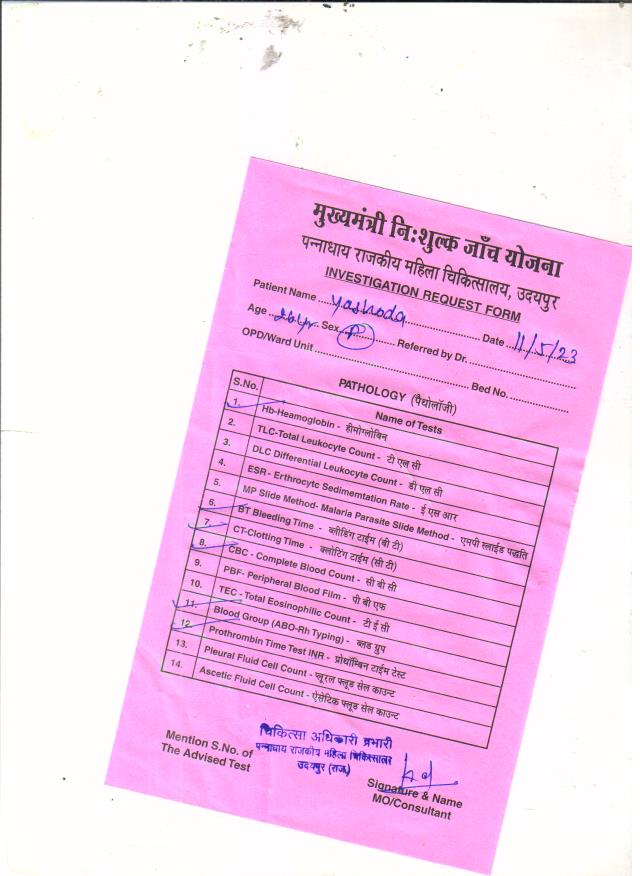 मुख्यमंत्री निःशुल्क जाँच योजना
पन्नाधाय राजकीय महिला चिकित्सालय, उदयपुर
INVESTIGATION REQUEST FORM
Patient Name Yashoda Date 11/5/23
Age 26yr Sex F Referred by Dr.
OPD/Ward Unit Bed No.
PATHOLOGY (पैथोलॉजी)
S.No. Name of Tests
1. Hb-Heamoglobin - हीमोग्लोबिन
2. TLC-Total Leukocyte Count - टी एल सी
3. DLC Differential Leukocyte Count - डी एल सी
4. ESR - Erthrocytc Sedimemtation Rate - ई एस आर
5. MP Slide Method- Malaria Parasite Slide Method - एमपी स्लाईड पद्धति
6. BT Bleeding Time - ब्लीडिंग टाईम (बी टी)
7. CT-Clotting Time - क्लोटिंग टाईम (सी टी)
8. CBC - Complete Blood Count - सी बी सी
9. PBF- Peripheral Blood Film - पी बी एफ
10. TEC - Total Eosinophilic Count - टी ई सी
11. Blood Group (ABO-Rh Typing) - ब्लड ग्रुप
12. Prothrombin Time Test INR - प्रोथॉम्बिन टाईम टेस्ट
13. Pleural Fluid Cell Count - प्लूरल फ्लूड सेल काउन्ट
14. Ascetic Fluid Cell Count - ऐसेटिक फ्लूड सेल काउन्ट
चिकित्सा अधिकारी प्रभारी
पन्नाधाय राजकीय महिला चिकित्सालय
उदयपुर (राज.)
Mention S.No. of
The Advised Test
Signature & Name
MO/Consultant